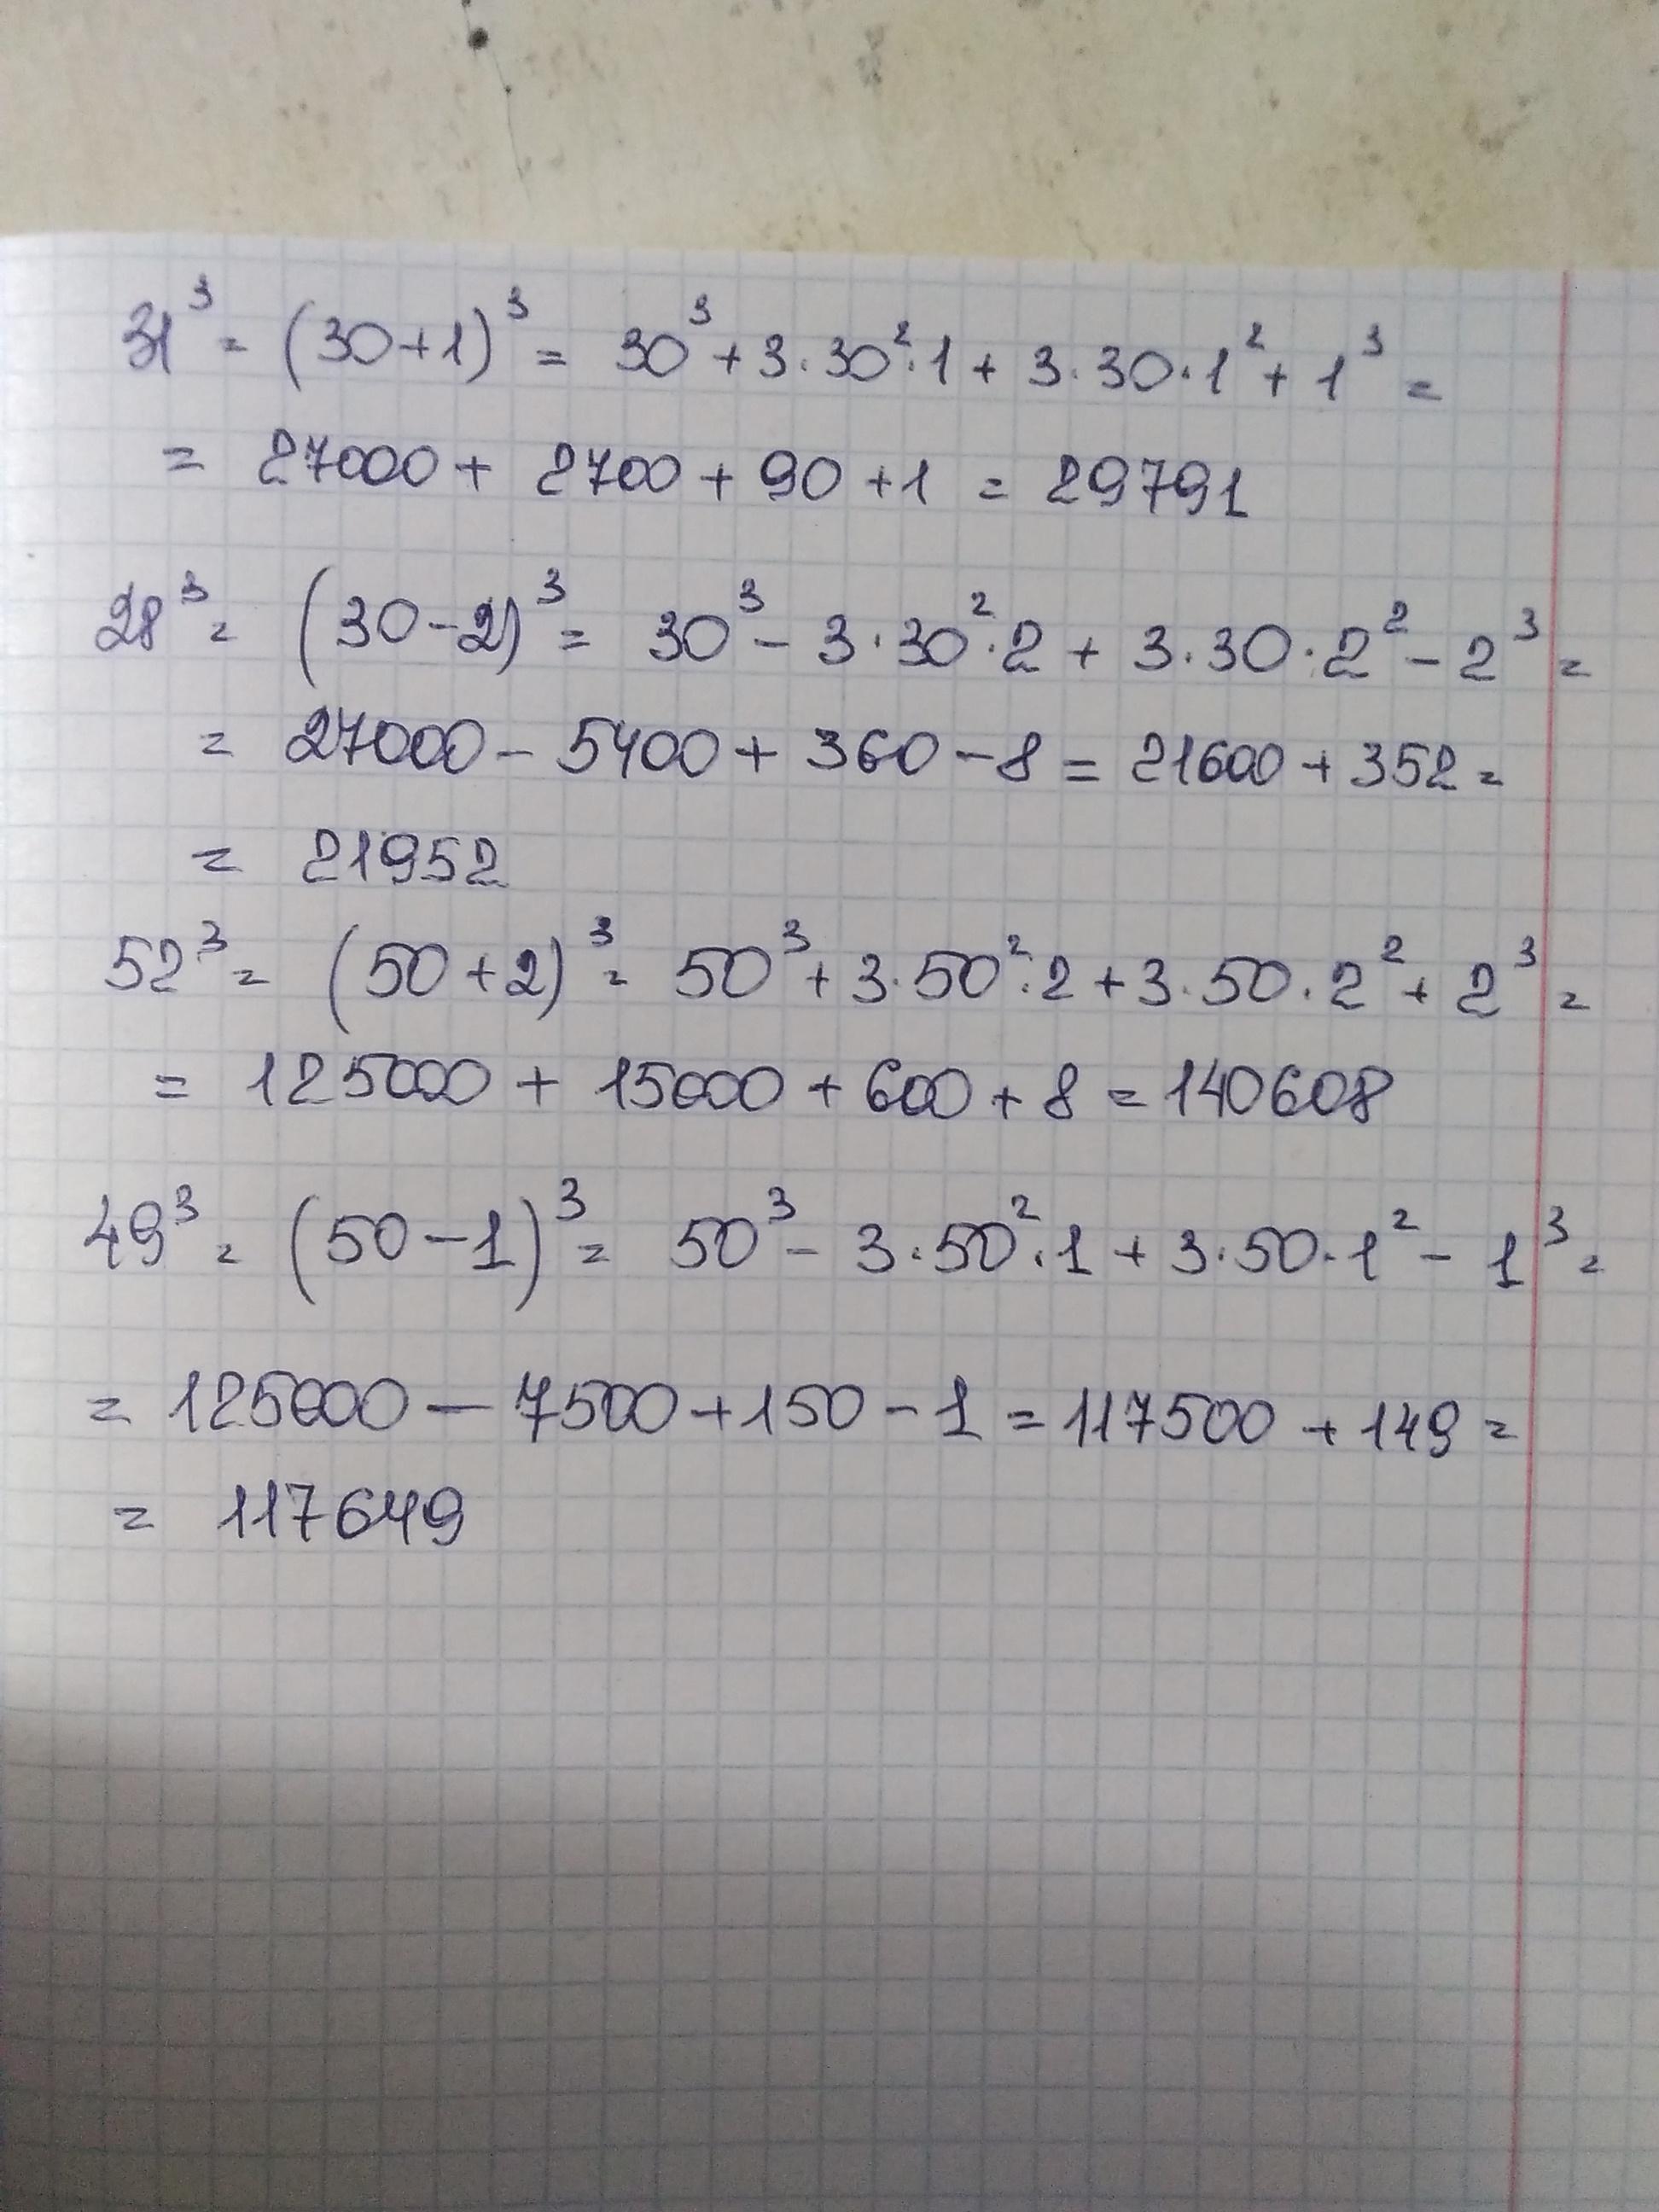 31³ = (30+1)³ = 30³ + 3·30²·1 + 3·30·1² + 1³ =
= 27000 + 2700 + 90 + 1 = 29791
28³ = (30-2)³ = 30³ - 3·30²·2 + 3·30·2² - 2³ =
= 27000 - 5400 + 360 - 8 = 21600 + 352 =
= 21952
52³ = (50+2)³ = 50³ + 3·50²·2 + 3·50·2² + 2³ =
= 125000 + 15000 + 600 + 8 = 140608
49³ = (50-1)³ = 50³ - 3·50²·1 + 3·50·1² - 1³ =
= 125000 - 7500 + 150 - 1 = 117500 + 149 =
= 117649